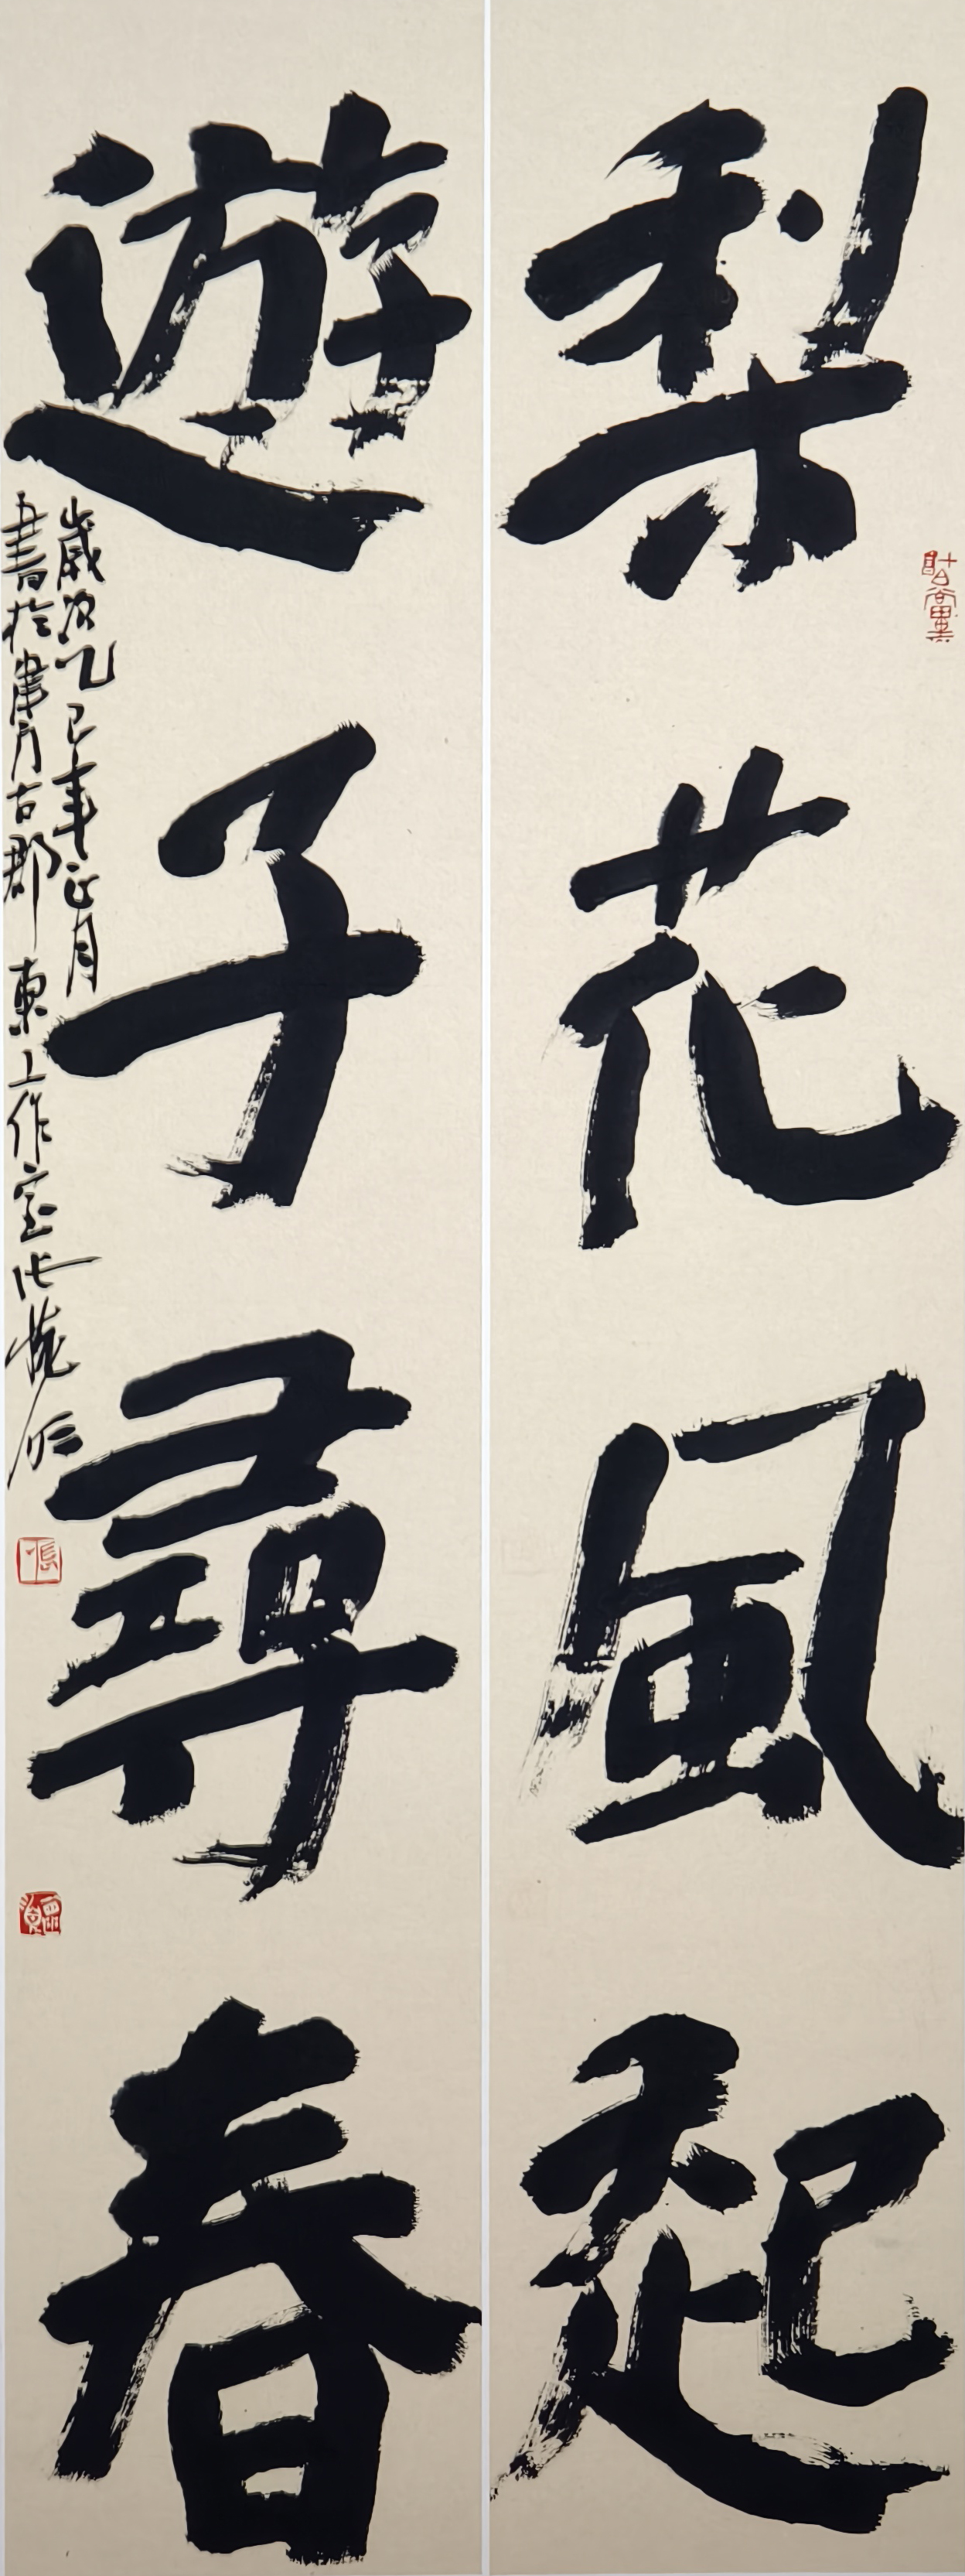 梨花風起
遊子尋春
歲次乙巳年正月
書於津門古郡東上作室